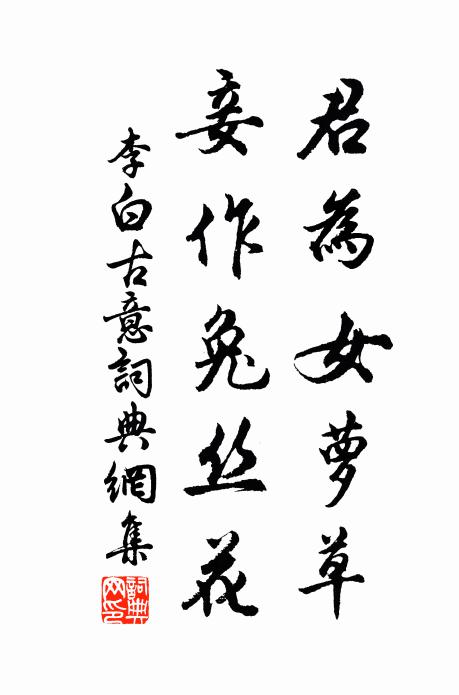 君為女夢草
妾作兔丝花
李白古意詞典網集
詞典网印